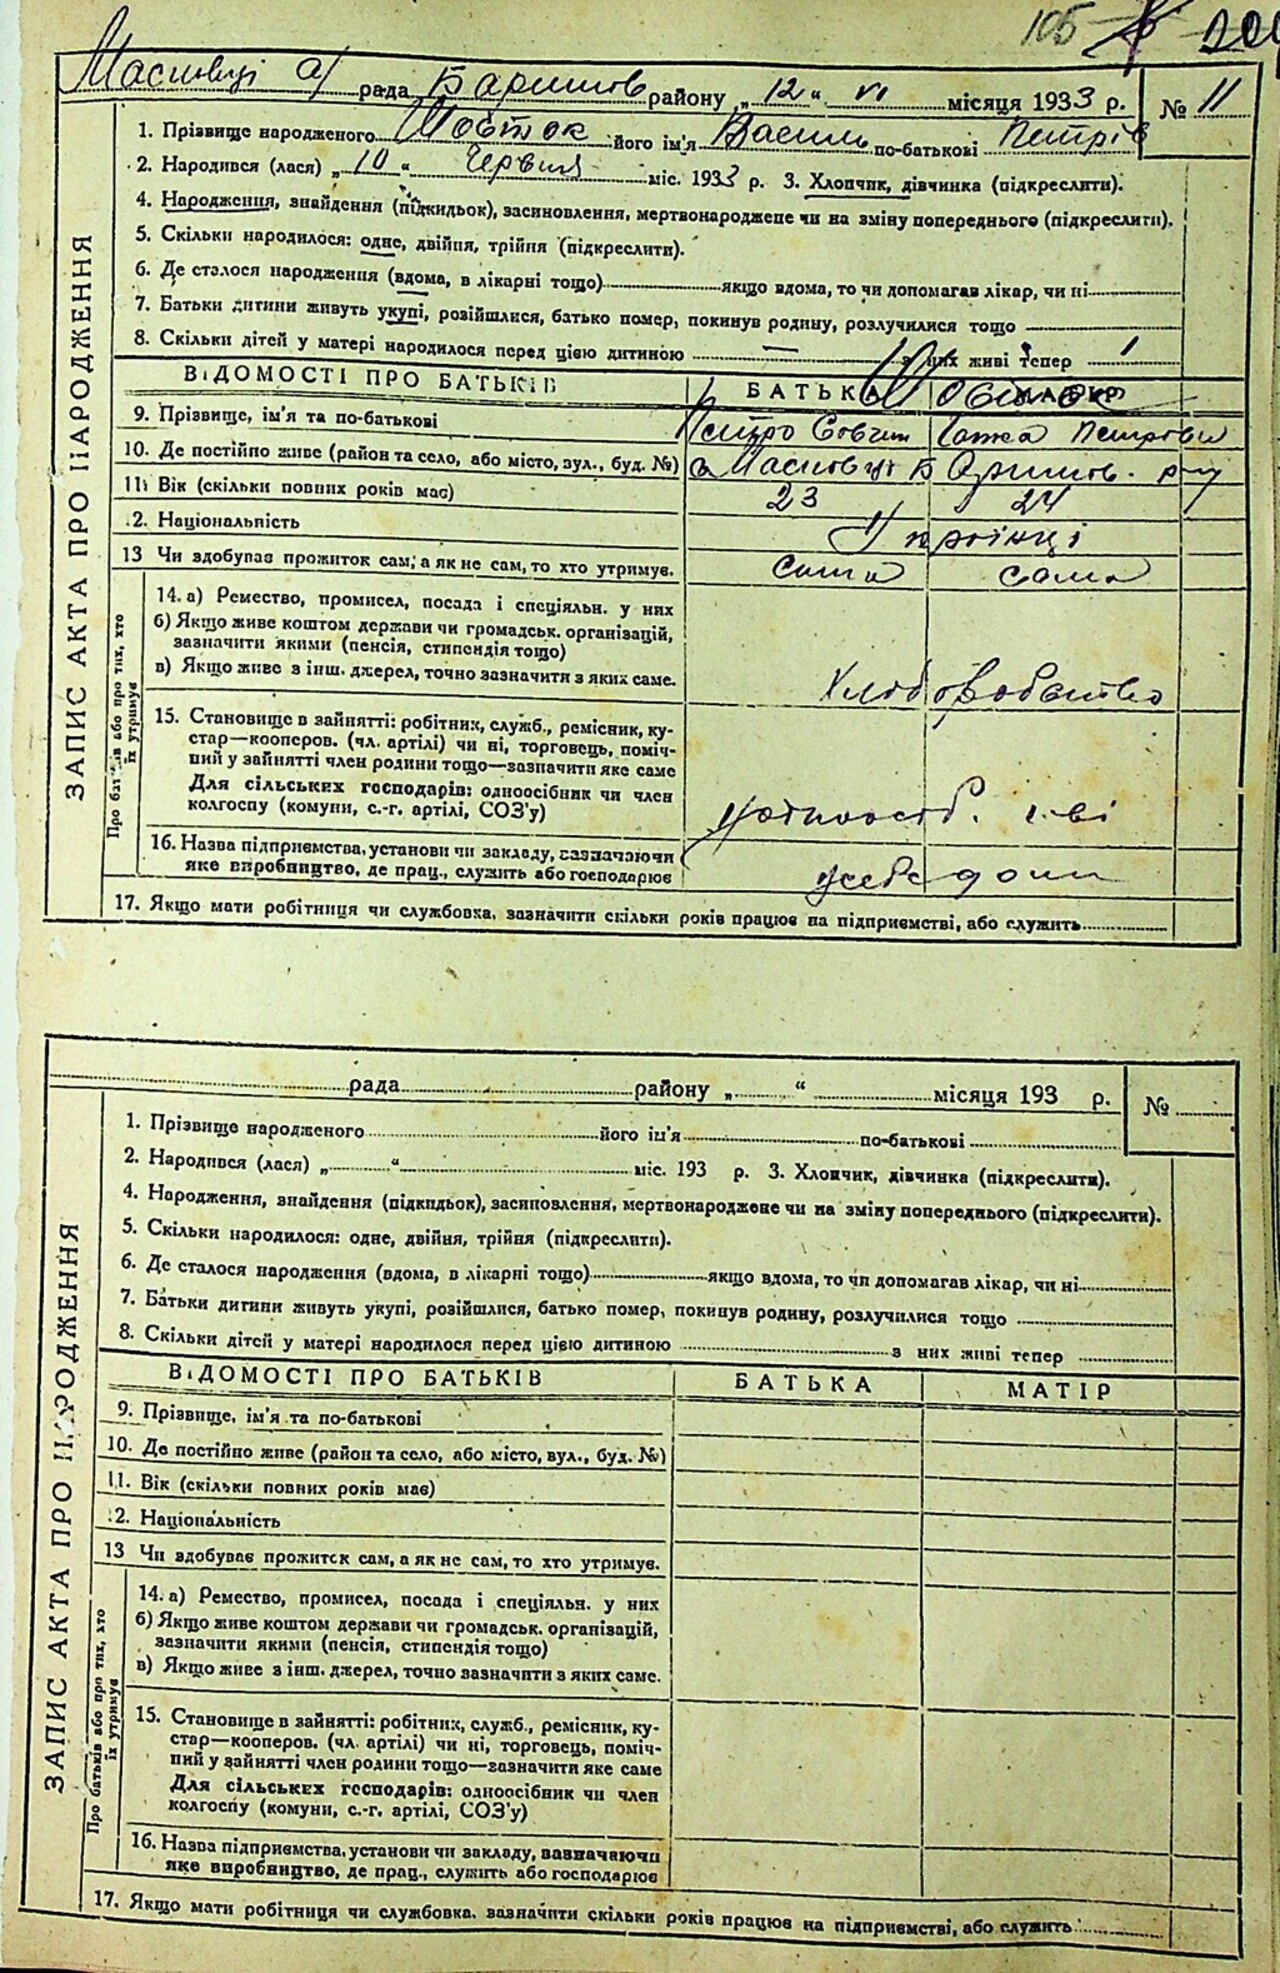 105
Масковці а/ рада Баришов району „12“ VI місяця 1933 р. № 11
ЗАПИС АКТА ПРО НАРОДЖЕННЯ
1. Прізвище народженого Шовток його ім'я Василь по-батькові Петрів
2. Народився (лася) „10“ Червня міс. 1933 р. 3. Хлопчик, дівчинка (підкреслити).
4. Народження, знайдення (підкидьок), засиновлення, мертвонароджене чи на зміну попереднього (підкреслити).
5. Скільки народилося: одне, двійня, трійня (підкреслити).
6. Де сталося народження (вдома, в лікарні тощо) якщо вдома, то чи допомагав лікар, чи ні
7. Батьки дитини живуть укупі, розійшлися, батько помер, покинув родину, розлучилися тощо
8. Скільки дітей у матері народилося перед цією дитиною — з них живі тепер 1
ВІДОМОСТІ ПРО БАТЬКІВ БАТЬКА МАТІР
Шовток
9. Прізвище, ім'я та по-батькові Петро Петровн
10. Де постійно живе (район та село, або місто, вул., буд. №) с Масковці Баришов. р-ну
11. Вік (скільки повних років має) 23 24
2. Національність Українці
13 Чи здобував прожиток сам, а як не сам, то хто утримує. сам сама
Про батьків або про тих, хто їх утримує
14. а) Ремество, промисел, посада і спеціяльн. у них
б) Якщо живе коштом держави чи громадськ. організацій,
зазначити якими (пенсія, стипендія тощо)
в) Якщо живе з інш. джерел, точно зазначити з яких саме.
Хлеборобство
15. Становище в зайнятті: робітник, служб., ремісник, ку-
стар—кооперов. (чл. артілі) чи ні, торговець, поміч-
ний у зайнятті член родини тощо—зазначити яке саме
Для сільських господарів: одноосібник чи член
колгоспу (комуни, с.-г. артілі, СОЗ'у)
16. Назва підприємства, установи чи закладу, зазначаючи
яке виробництво, де прац., служить або господарює
у себе дома
17. Якщо мати робітниця чи службовка, зазначити скільки років працює на підприємстві, або служить
рада району „ “ місяця 193 р. №
ЗАПИС АКТА ПРО НАРОДЖЕННЯ
1. Прізвище народженого його ім'я по-батькові
2. Народився (лася) „ “ міс. 193 р. 3. Хлопчик, дівчинка (підкреслити).
4. Народження, знайдення (підкидьок), засиновлення, мертвонароджене чи на зміну попереднього (підкреслити).
5. Скільки народилося: одне, двійня, трійня (підкреслити).
6. Де сталося народження (вдома, в лікарні тощо) якщо вдома, то чи допомагав лікар, чи ні
7. Батьки дитини живуть укупі, розійшлися, батько помер, покинув родину, розлучилися тощо
8. Скільки дітей у матері народилося перед цією дитиною з них живі тепер
ВІДОМОСТІ ПРО БАТЬКІВ БАТЬКА МАТІР
9. Прізвище, ім'я та по-батькові
10. Де постійно живе (район та село, або місто, вул., буд. №)
11. Вік (скільки повних років має)
2. Національність
13 Чи здобував прожиток сам, а як не сам, то хто утримує.
Про батьків або про тих, хто їх утримує
14. а) Ремество, промисел, посада і спеціяльн. у них
б) Якщо живе коштом держави чи громадськ. організацій,
зазначити якими (пенсія, стипендія тощо)
в) Якщо живе з інш. джерел, точно зазначити з яких саме.
15. Становище в зайнятті: робітник, служб., ремісник, ку-
стар—кооперов. (чл. артілі) чи ні, торговець, поміч-
ний у зайнятті член родини тощо—зазначити яке саме
Для сільських господарів: одноосібник чи член
колгоспу (комуни, с.-г. артілі, СОЗ'у)
16. Назва підприємства, установи чи закладу, зазначаючи
яке виробництво, де прац., служить або господарює
17. Якщо мати робітниця чи службовка, зазначити скільки років працює на підприємстві, або служить